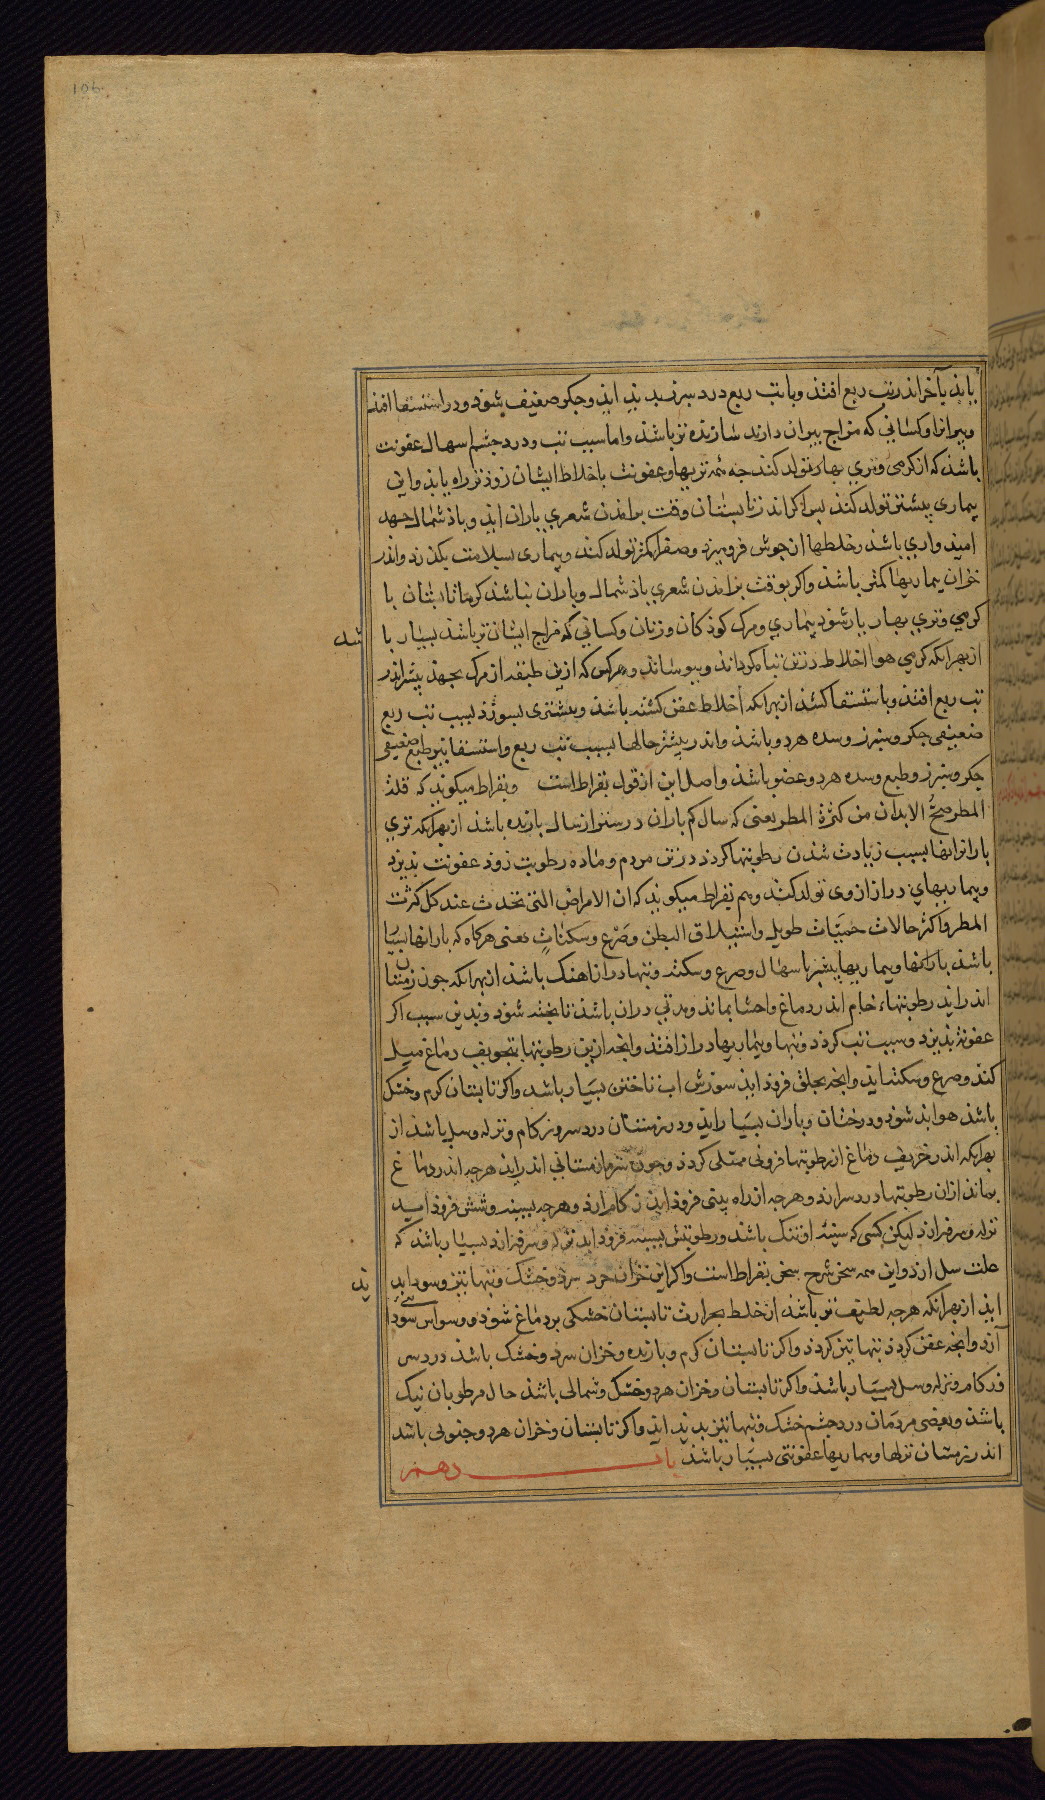 106
یابد یا آخر اندر تب ربع افتذ و با تب ربع درد سبرز بدید اید و جکر ضعیف شود و در استسقا افتد
و پیرانرا و کسانی که مزاج پیران دارند سازنده تر باشذ و اما سبب تب و درد جشم و اسهال عفونت
باشذ که از کرمی و تری بهار تولد کند جه همه تریها و عفونت باخلاط ایشان زوذتر راه یابذ و این
بیماری پیشتر تولد کنذ بس اکر اندر تابستان وقت برامذن شعری باران ایذ و باذ شمال جهد
امیدواری باشذ خلطها از جوش فرو میرد و صفرا کمتر تولد کند و بیماری بسلامت بکذرد و اندر
خزان بیماریها کمتر باشذ و اکر بوقت برامذن شعری باذ شمال و باران نباشذ کرما تابستان با
کرمی و تری بهار یار شوذ بیماری و مرک کوذکان و زنان و کسانی که مزاج ایشان تر باشذ بسیار باشد
از بهر انکه کرمی هوا اخلاط در تن تباه کرداند و ببوساند و هرکس که ازین طبقه از مرک بجهد بیشتر اندر
تب ربع افتذ و باستسقا کشذ از بهر انکه اخلاط عفن کشته باشذ و بیشتری بسوزذ بسبب تب ربع
ضعیفی جکر و سبرز و سده هر دو باشذ و اندر بیشتر حالها بسبب تب ربع و استسقا نیز طبع ضعیفی
جکر و سبرز و طبع و سده هر دو عضو باشذ و اصل این از قول بقراط است و بقراط میکوید که قلة
المطر اصحُّ الابدان من کثرة المطر یعنی که سال کم باران درستر از سال بارنده باشذ از بهر انکه تری
بارانرا انها بسبب زیادت شدن رطوبتها کردد در تن مردم و ماده رطوبت زوذ عفونت بذیرد
و بیماریهای دراز از وی تولد کند و هم بقراط میکوید که ان الامراض التی تحدث عند کل کثرت
المطر فاکثر حالات حمیّات طویله و استطلاق البطن و صَرْع و سکتاتٍ یعنی هرکاه که بارانها بسیا
باشذ بارانها و بیماریها بیشتر اسهال و صرع و سکته و تبها دراز اهنک باشذ از بهر انکه جون زمستان
اندر اید رطوبتهاء خام اندر دماغ و احشا بماند و مدتی دران باشذ تا بخته شوذ و بدین سبب اکر
عفونت بذیرد و سبب تب کردد و تبها و بیماریها دراز افتذ و انجه ازین رطوبتها بتجویف دماغ میل
کند و صرع و سکته اید و انجه بحلق فروذ ایذ سوزش اب تاختن بسیار باشد و اکر تابستان کرم و خشک
باشذ هوا بد شوذ و درختان و باران بسیار اید و در زمستان درد سر و زکام و نزله و سل باشذ از
بهر انکه اندر خریف دماغ از رطوبتها فزونی ممتلی کردد و جون سرماء زمستانی اندر اید هرجه اندر دماغ
بماند از ان رطوبتها درد سر ارد و هرجه از راه بینی فروذ ایذ زکام ارد و هرجه بسینه و شش فروذ اید
نزله و سرفه ارد لیکن کسی که سینه او تنک باشذ و رطوبتش بسینه فروذ اید نزله و سرفه ارد بسیار باشد که
علت سل ارد و این همه سخن شرح سخن بقراط است و اکر این خزان خود سرد و خشک و تبها تیز و سود ابدید
ایذ از بهر انکه هرجه لطیف تر باشذ از خلط بحرارت تابستان خشکی بر دماغ شوذ و وسواس سودا
آرد و انجه عفن کردذ تبها تیز کردد و اکر تابستان کرم و بارنده و خزان سرد و خشک باشذ درد سر
و زکام و نزله و سل بسیار باشذ و اکر تابستان و خزان هر دو خشک و شمالی باشذ حال مرطوبان نیک
باشذ و بعضی مردمان درد جشم خشک و تبها تیز بدید ایذ و اکر تابستان و خزان هر دو جنوبی باشد
اندر زمستان نزلها و بیماریها عفونتی بسیار باشذ باب دهم